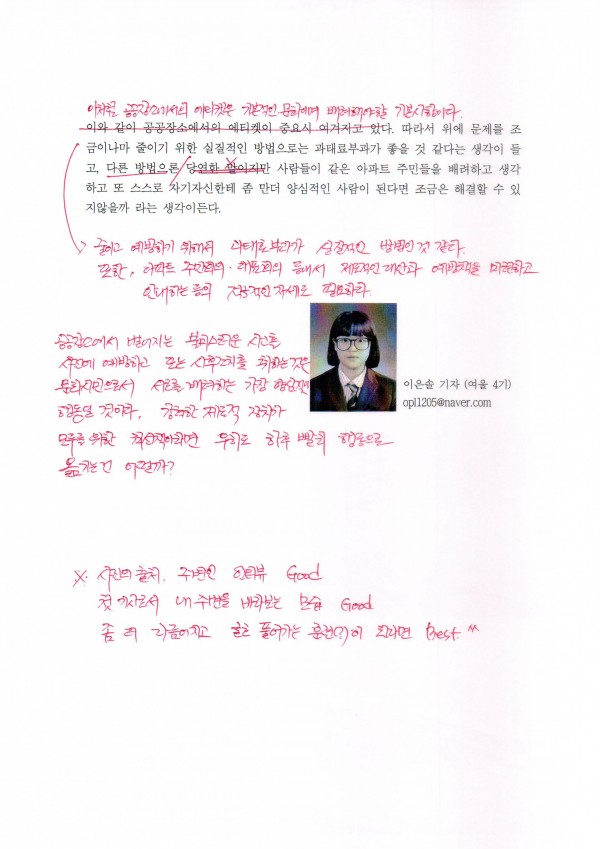 이처럼 공공장소에서의 에티켓은 기본적인 문화이며 배려해야할 기본사항이다.
이와 같이 공공장소에서의 에티켓이 중요시 여겨자고 있다. 따라서 위에 문제를 조
금이나마 줄이기 위한 실질적인 방법으로는 과태료부과가 좋을 것 같다는 생각이 들
고, 다른 방법으론 당연한 말이지만 사람들이 같은 아파트 주민들을 배려하고 생각
하고 또 스스로 자기자신한테 좀 만더 양심적인 사람이 된다면 조금은 해결할 수 있
지않을까 라는 생각이든다.
줄이고 예방하기 위해서 과태료부과가 실질적인 방법인것 같다.
또한, 아파트 주민회의·대표회의 등에서 제도적인 대안과 예방책을 마련하고
안내하는 등의 적극적인 자세도 필요하다.
공공장소에서 벌어지는 불미스러운 사고를
사전에 예방하고 또는 사후조치를 취하는 것은
문화시민으로서 서로를 배려하는 가장
행동일 것이다. 강력한 제도적 장치가
모두를 위한 최선책이라면 우리도 하루 빨리 행동으로
옮기는건 어떨까?
이은솔 기자 (여울 4기)
opl1205@naver.com
X. 사진의 출처, 주변인 인터뷰 Good
첫 기사로서 내 주변을 바라보는 모습 Good
좀 더 다듬어지고 술술 풀어가는 문전(?)이 된다면 Best ^^